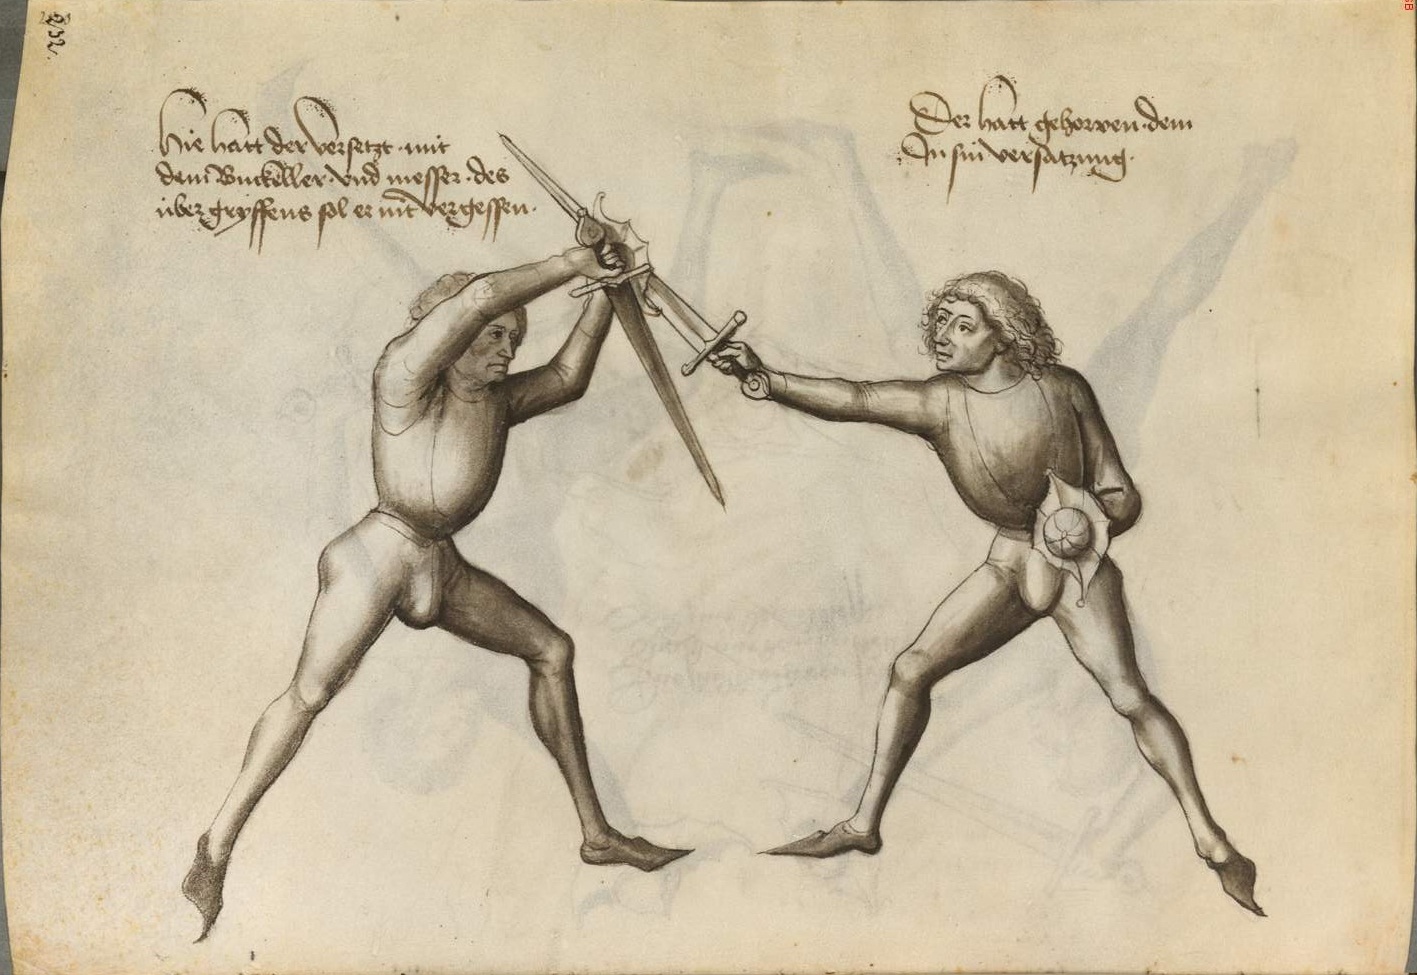 232
Hie hatt der versetzt · mit
dem Buckeller · vnd messer · des
über gryffens sol er nit vergessen ·
Der hatt gehowen · dem
In sin versatzung ·